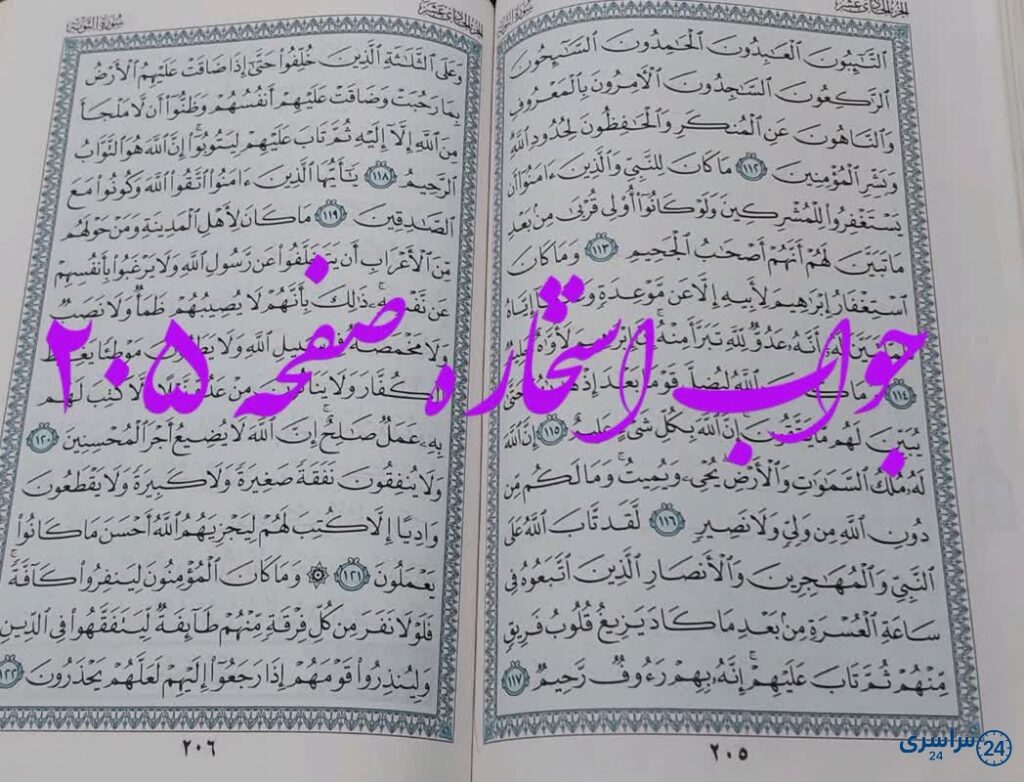 سُورَةُ التَّوْبَةِ
الجُزْءُ الحَادِي عَشَرَ
ٱلتَّٰٓئِبُونَ ٱلْعَٰبِدُونَ ٱلْحَٰمِدُونَ ٱلسَّٰٓئِحُونَ
ٱلرَّٰكِعُونَ ٱلسَّٰجِدُونَ ٱلْأٓمِرُونَ بِٱلْمَعْرُوفِ
وَٱلنَّاهُونَ عَنِ ٱلْمُنكَرِ وَٱلْحَٰفِظُونَ لِحُدُودِ ٱللَّهِ
وَبَشِّرِ ٱلْمُؤْمِنِينَ ١١٢ مَا كَانَ لِلنَّبِيِّ وَٱلَّذِينَ ءَامَنُوٓا۟ أَن
يَسْتَغْفِرُوا۟ لِلْمُشْرِكِينَ وَلَوْ كَانُوٓا۟ أُو۟لِى قُرْبَىٰ مِنۢ بَعْدِ
مَا تَبَيَّنَ لَهُمْ أَنَّهُمْ أَصْحَٰبُ ٱلْجَحِيمِ ١١٣ وَمَا كَانَ
ٱسْتِغْفَارُ إِبْرَٰهِيمَ لِأَبِيهِ إِلَّا عَن مَّوْعِدَةٍ إِيَّاهُ
أَنَّهُۥ عَدُوٌّ لِّلَّهِ تَبَرَّأَ مِنْهُ لَأَوَّٰهٌ
١١٤ ٱللَّهُ لِيُضِلَّ قَوْمًۢا بَعْدَ
يُبَيِّنَ لَهُم مَّا يَتَّقُونَ إِنَّ ٱللَّهَ بِكُلِّ شَىْءٍ عَلِيمٌ ١١٥ إِنَّ ٱللَّهَ
لَهُۥ مُلْكُ ٱلسَّمَٰوَٰتِ وَٱلْأَرْضِ يُحْىِۦ وَيُمِيتُ وَمَا لَكُم مِّن
دُونِ ٱللَّهِ مِن وَلِىٍّ وَلَا نَصِيرٍ ١١٦ لَّقَد تَّابَ ٱللَّهُ عَلَى
ٱلنَّبِىِّ وَٱلْمُهَٰجِرِينَ وَٱلْأَنصَارِ ٱلَّذِينَ ٱتَّبَعُوهُ فِى
سَاعَةِ ٱلْعُسْرَةِ مِنۢ بَعْدِ مَا كَادَ يَزِيغُ قُلُوبُ فَرِيقٍ
مِّنْهُمْ ثُمَّ تَابَ عَلَيْهِمْ إِنَّهُۥ بِهِمْ رَءُوفٌ رَّحِيمٌ ١١٧
٢٠٥
سُورَةُ التَّوْبَةِ
الجُزْءُ الحَادِي عَشَرَ
وَعَلَى ٱلثَّلَٰثَةِ ٱلَّذِينَ خُلِّفُوا۟ حَتَّىٰٓ إِذَا ضَاقَتْ عَلَيْهِمُ ٱلْأَرْضُ
بِمَا رَحُبَتْ وَضَاقَتْ عَلَيْهِمْ أَنفُسُهُمْ وَظَنُّوٓا۟ أَن لَّا مَلْجَأَ
مِنَ ٱللَّهِ إِلَّآ إِلَيْهِ ثُمَّ تَابَ عَلَيْهِمْ لِيَتُوبُوٓا۟ إِنَّ ٱللَّهَ هُوَ ٱلتَّوَّابُ
ٱلرَّحِيمُ ١١٨ يَٰٓأَيُّهَا ٱلَّذِينَ ءَامَنُوا۟ ٱتَّقُوا۟ ٱللَّهَ وَكُونُوا۟ مَعَ
ٱلصَّٰدِقِينَ ١١٩ مَا كَانَ لِأَهْلِ ٱلْمَدِينَةِ وَمَنْ حَوْلَهُم
مِّنَ ٱلْأَعْرَابِ أَن يَتَخَلَّفُوا۟ عَن رَّسُولِ ٱللَّهِ وَلَا يَرْغَبُوا۟ بِأَنفُسِهِمْ
عَن نَّفْسِهِۦ ذَٰلِكَ بِأَنَّهُمْ لَا يُصِيبُهُمْ ظَمَأٌ وَلَا نَصَبٌ
وَلَا مَخْمَصَةٌ ٱللَّهِ وَلَا مَوْطِئًا
ٱلْكُفَّارَ وَلَا مِنْ إِلَّا كُتِبَ لَهُم
بِهِۦ عَمَلٌ صَٰلِحٌ إِنَّ ٱللَّهَ لَا يُضِيعُ أَجْرَ ٱلْمُحْسِنِينَ ١٢٠
وَلَا يُنفِقُونَ نَفَقَةً صَغِيرَةً وَلَا كَبِيرَةً وَلَا يَقْطَعُونَ
وَادِيًا إِلَّا كُتِبَ لَهُمْ لِيَجْزِيَهُمُ ٱللَّهُ أَحْسَنَ مَا كَانُوا۟
يَعْمَلُونَ ١٢١ وَمَا كَانَ ٱلْمُؤْمِنُونَ لِيَنفِرُوا۟ كَآفَّةً
فَلَوْلَا نَفَرَ مِن كُلِّ فِرْقَةٍ مِّنْهُمْ طَآئِفَةٌ لِّيَتَفَقَّهُوا۟ فِى ٱلدِّينِ
وَلِيُنذِرُوا۟ قَوْمَهُمْ إِذَا رَجَعُوٓا۟ إِلَيْهِمْ لَعَلَّهُمْ يَحْذَرُونَ ١٢٢
٢٠٦
جواب استخاره صفحه ۲۰۵
سراسری 24
24